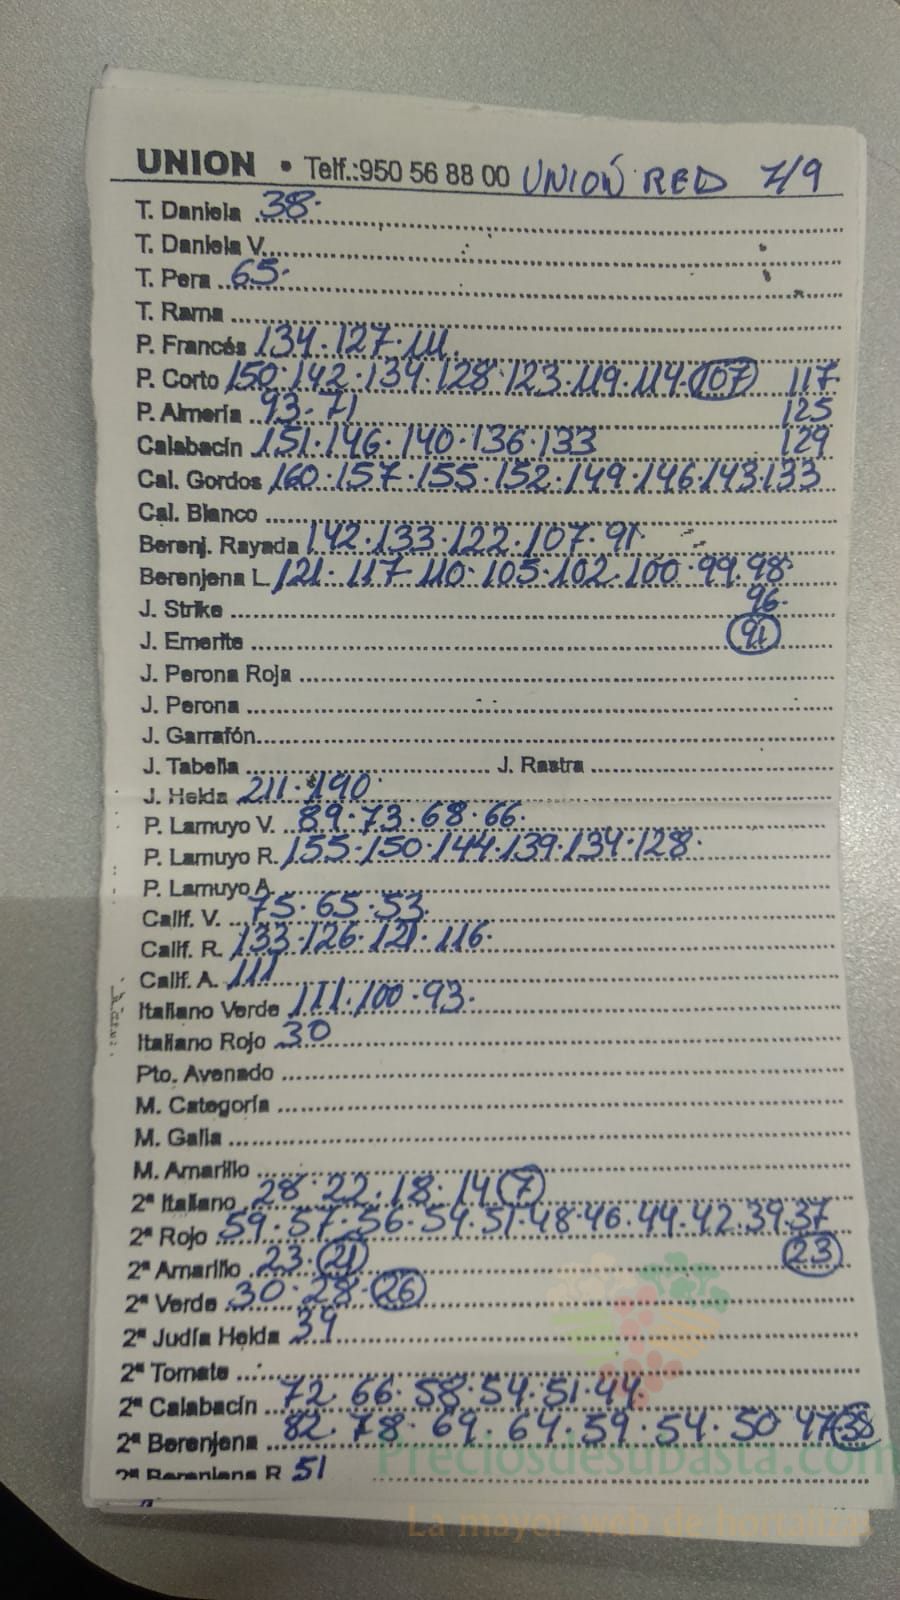 UNION • Telf.:950 56 88 00 UNIÓN RED 7/9
T. Daniela 38.
T. Daniela V.
T. Pera 65.
T. Rama
P. Francés 134.127.111.
P. Corto 150.142.134.128.123.119.114.107 117
P. Almería 93-71 125
Calabacín 151.146.140.136.133 129
Cal. Gordos 160.157.155.152.149.146.143.133
Cal. Blanco
Berenj. Rayada 142.133.122.107.91.
Berenjena L. 121.117.110.105.102.100.99.98
J. Strike 96.
J. Emerite 91
J. Perona Roja
J. Perona
J. Garrafón
J. Tabella J. Rastra
J. Helda 211.190.
P. Lamuyo V. 89.73.68.66.
P. Lamuyo R. 155.150.144.139.134.128.
P. Lamuyo A.
Calif. V. 75.65.53.
Calif. R. 133.126.121.116.
Calif. A. 111
Italiano Verde 111.100.93.
Italiano Rojo 30
Pto. Avenado
M. Categoría
M. Galia
M. Amarillo
2ª Italiano 28.22.18.14 7
2ª Rojo 59.57.56.54.51.48.46.44.42.39.37
2ª Amarillo 23.21 23
2ª Verde 30.28.26
2ª Judía Helda 39
2ª Tomate
2ª Calabacín 72.66.58.54.51.44.
2ª Berenjena 82.78.69.64.59.54.50 47 38
2ª Berenjena R 51
Preciosdesubasta.com
La mayor web de hortalizas